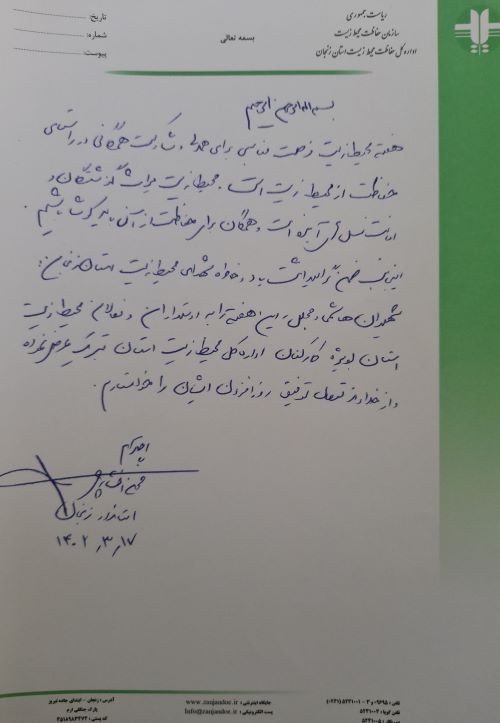 ریاست جمهوری
سازمان حفاظت محیط زیست
اداره کل حفاظت محیط زیست استان زنجان
بسمه تعالی
تاریخ:
شماره:
پیوست:
بسم الله الرحمن الرحیم
هفته محیط زیست فرصت مناسبی برای همدلی و مشارکت همگانی در راستای
حفاظت از محیط زیست است. محیط زیست میراث گذشتگان و
امانت نسل های آینده است و همگان برای حفاظت از آن باید کوشا باشیم.
اینجانب ضمن گرامیداشت یاد و خاطره شهدای محیط زیست استان زنجان:
شهیدان هاشمی و مجللی، این هفته را به دوستداران و فعالان محیط زیست
استان بویژه کارکنان اداره کل محیط زیست استان تبریک عرض نموده
و از خداوند متعال توفیق روزافزون ایشان را خواستارم.
با احترام
محسن افشارچی
استاندار زنجان
۱۴۰۲,۳,۱۷
تلفن: ۰۹۶۹۵ و ۳ - ۵۲۳۱۰۰۱ (۰۲۴۱)
تلفن گویا: ۵۲۳۱۰۰۲
جایگاه اینترنتی: www.zanjandoe.ir
پست الکترونیکی: Info@zanjandoe.ir
آدرس: زنجان - ابتدای جاده تبریز
پارک جنگلی ارم
کد پستی: ۴۵۱۸۹۸۳۲۷۴